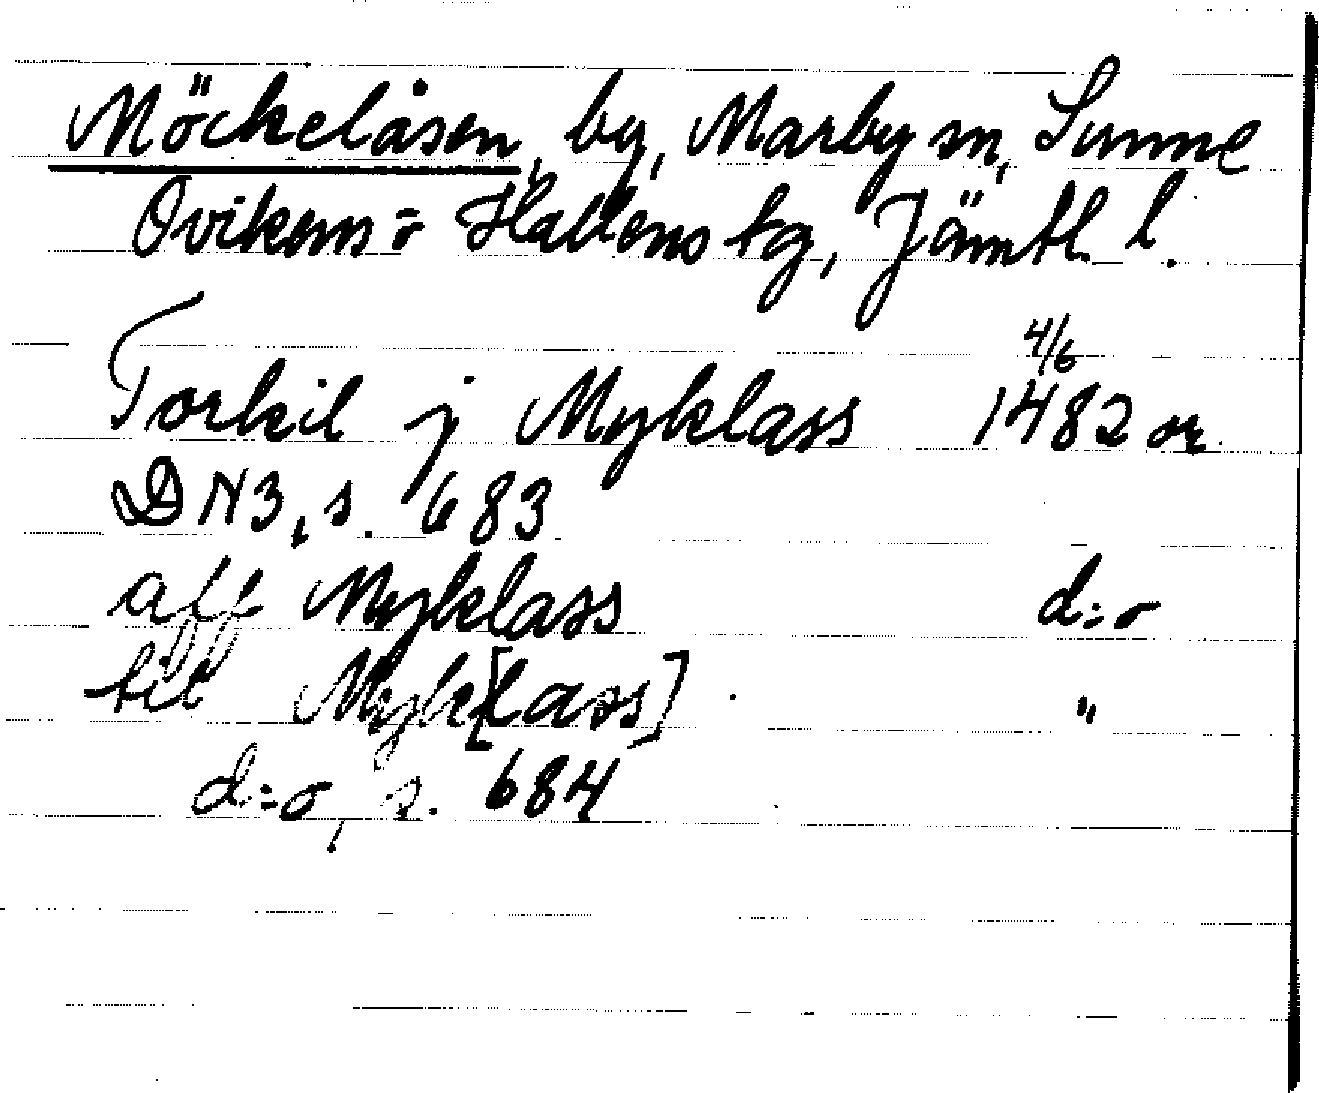 Möckelåsen, by, Marby sn, Sunne
Ovikens o Hallens tg, Jämtl. l.
4/6
Torkil j Myklass 1482 or
DN3, s. 683
aff Myklass d:o
till Myk[lass] "
d:o, s. 684